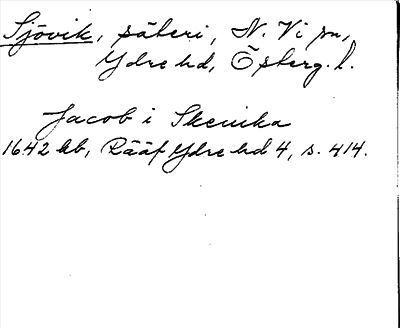 Sjövik, säteri, N. Vi sn,
Ydre hd, Österg. l.
Jacob i Skenika
1642 kb, Rääf Ydre hd 4, s. 414.